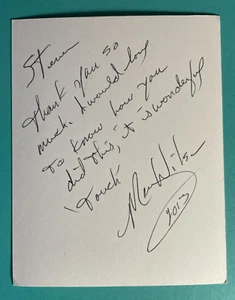 Steve
Thank you so
much. I would love
to know how you
did this, it is wonderful
Touch
2013